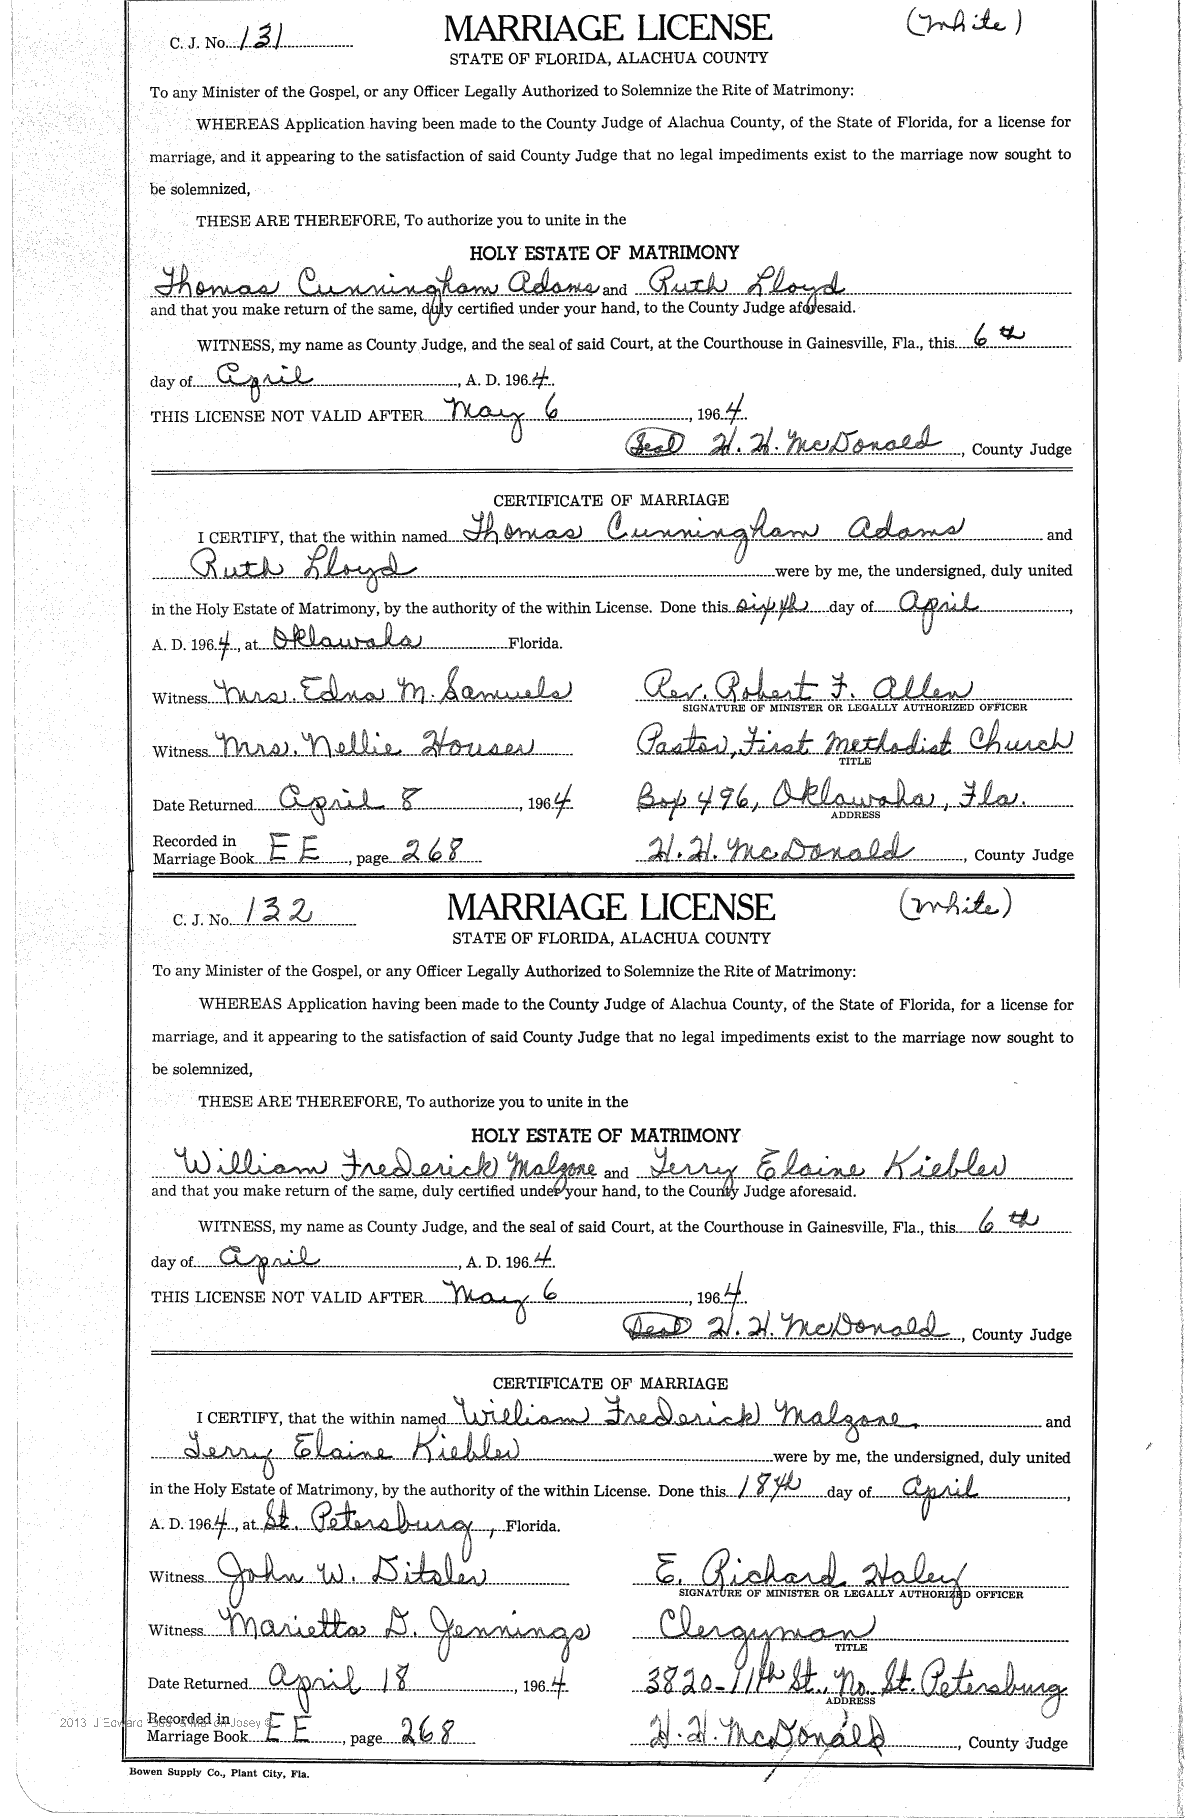 C. J. No. 131 MARRIAGE LICENSE (White)
STATE OF FLORIDA, ALACHUA COUNTY
To any Minister of the Gospel, or any Officer Legally Authorized to Solemnize the Rite of Matrimony:
WHEREAS Application having been made to the County Judge of Alachua County, of the State of Florida, for a license for
marriage, and it appearing to the satisfaction of said County Judge that no legal impediments exist to the marriage now sought to
be solemnized,
THESE ARE THEREFORE, To authorize you to unite in the
HOLY ESTATE OF MATRIMONY
Thomas Cunningham Adams and Ruth Lloyd
and that you make return of the same, duly certified under your hand, to the County Judge aforesaid.
WITNESS, my name as County Judge, and the seal of said Court, at the Courthouse in Gainesville, Fla., this 6th
day of April, A. D. 1964.
THIS LICENSE NOT VALID AFTER May 6, 1964.
(Seal) H. H. McDonald, County Judge
CERTIFICATE OF MARRIAGE
I CERTIFY, that the within named Thomas Cunningham Adams and
Ruth Lloyd were by me, the undersigned, duly united
in the Holy Estate of Matrimony, by the authority of the within License. Done this sixth day of April,
A. D. 1964, at Oklawaha Florida.
Witness Mrs. Edna M. Samuels Rev. Robert F. Allen
SIGNATURE OF MINISTER OR LEGALLY AUTHORIZED OFFICER
Witness Mrs. Nellie Houser Pastor, First Methodist Church
TITLE
Date Returned April 8, 1964 Box 496, Oklawaha, Fla.
ADDRESS
Recorded in
Marriage Book EE, page 268 H. H. McDonald, County Judge
C. J. No. 132 MARRIAGE LICENSE (White)
STATE OF FLORIDA, ALACHUA COUNTY
To any Minister of the Gospel, or any Officer Legally Authorized to Solemnize the Rite of Matrimony:
WHEREAS Application having been made to the County Judge of Alachua County, of the State of Florida, for a license for
marriage, and it appearing to the satisfaction of said County Judge that no legal impediments exist to the marriage now sought to
be solemnized,
THESE ARE THEREFORE, To authorize you to unite in the
HOLY ESTATE OF MATRIMONY
William Frederick Malzone and Terry Elaine Kiebler
and that you make return of the same, duly certified under your hand, to the County Judge aforesaid.
WITNESS, my name as County Judge, and the seal of said Court, at the Courthouse in Gainesville, Fla., this 6th
day of April, A. D. 1964.
THIS LICENSE NOT VALID AFTER May 6, 1964.
(Seal) H. H. McDonald, County Judge
CERTIFICATE OF MARRIAGE
I CERTIFY, that the within named William Frederick Malzone, and
Terry Elaine Kiebler were by me, the undersigned, duly united
in the Holy Estate of Matrimony, by the authority of the within License. Done this 18th day of April,
A. D. 1964, at St. Petersburg, Florida.
Witness John W. Ditsler E. Richard Haley
SIGNATURE OF MINISTER OR LEGALLY AUTHORIZED OFFICER
Witness Marietta D. Jennings Clergyman
TITLE
Date Returned April 18, 1964 3820-11th St., No. St. Petersburg
ADDRESS
2013 J Edward
Recorded in
Marriage Book EE, page 268 H. H. McDonald, County Judge
Bowen Supply Co., Plant City, Fla.